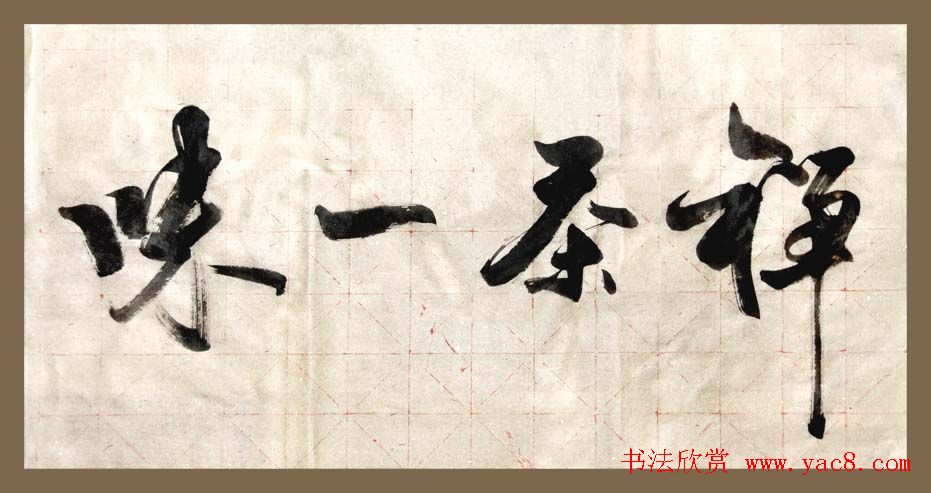 禅茶一味
书法欣赏 www.yac8.com